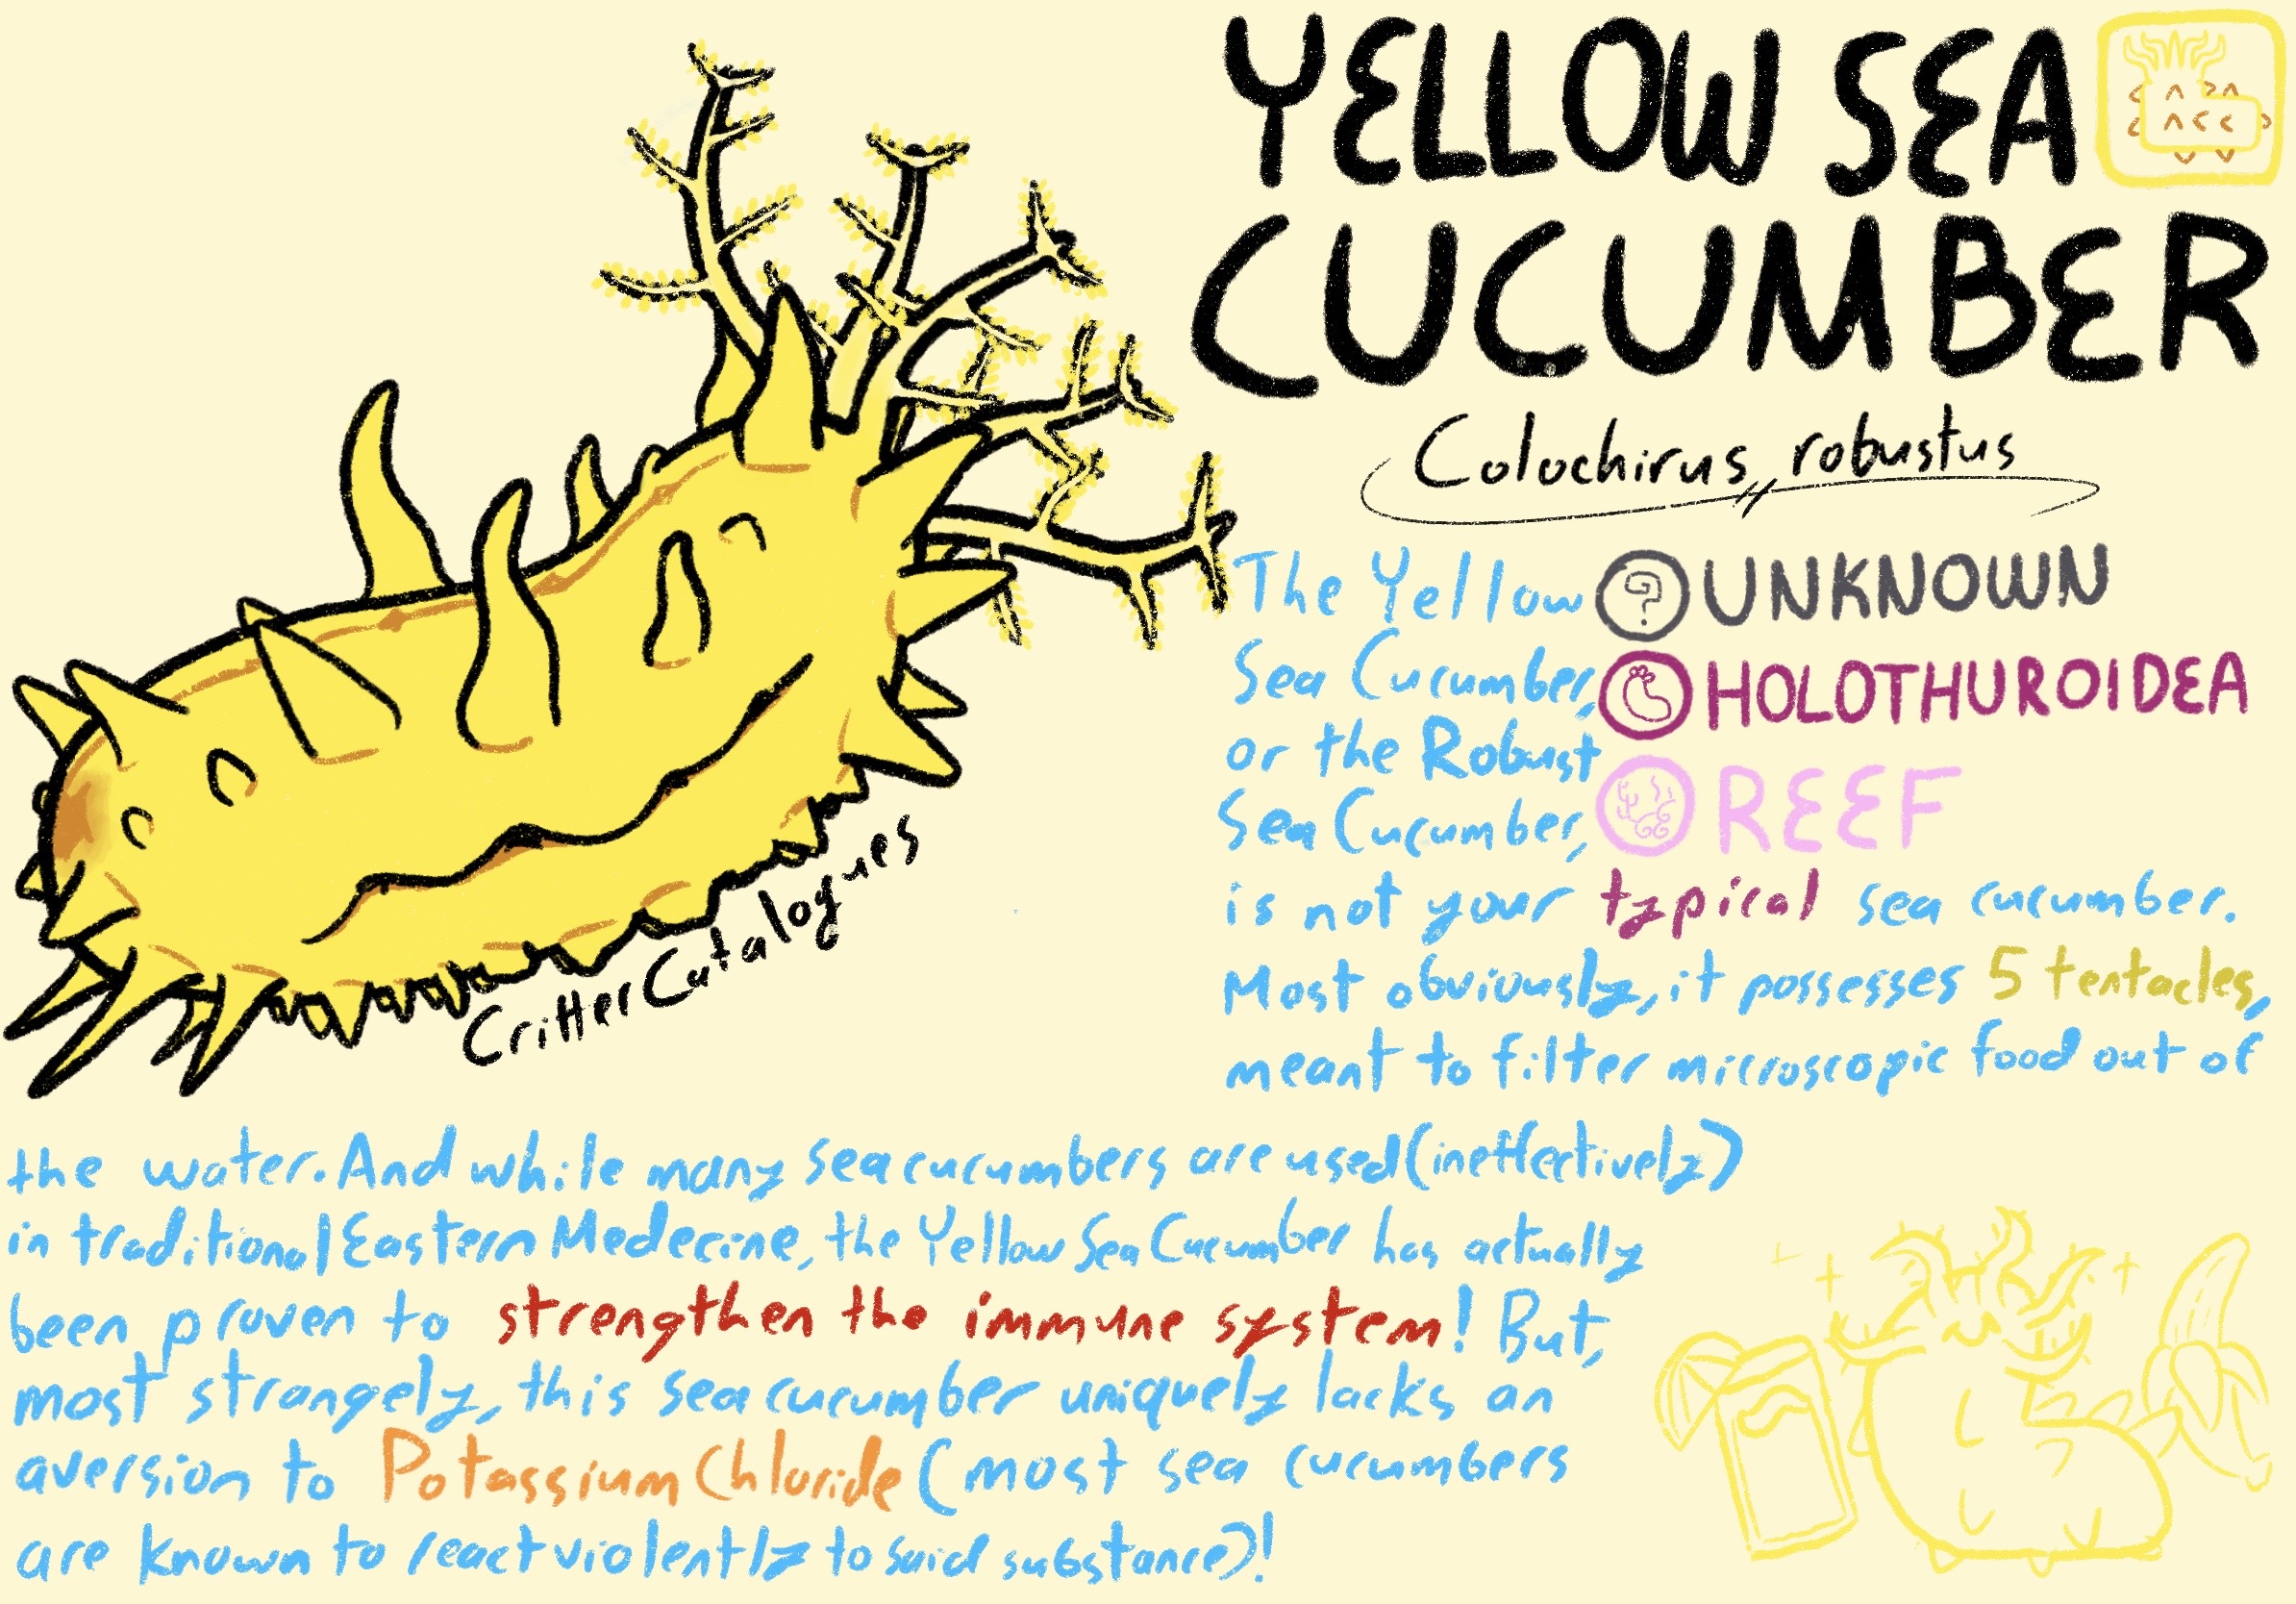 YELLOW SEA
CUCUMBER
Colochirus robustus
? UNKNOWN
HOLOTHUROIDEA
REEF
The Yellow
Sea Cucumber,
or the Robust
Sea Cucumber,
is not your typical sea cucumber.
Most obviously, it possesses 5 tentacles,
meant to filter microscopic food out of
the water. And while many sea cucumbers are used (ineffectively)
in traditional Eastern Medecine, the Yellow Sea Cucumber has actually
been proven to strengthen the immune system! But,
most strangely, this sea cucumber uniquely lacks an
aversion to Potassium Chloride (most sea cucumbers
are known to react violently to said substance)!
CritterCatalogues